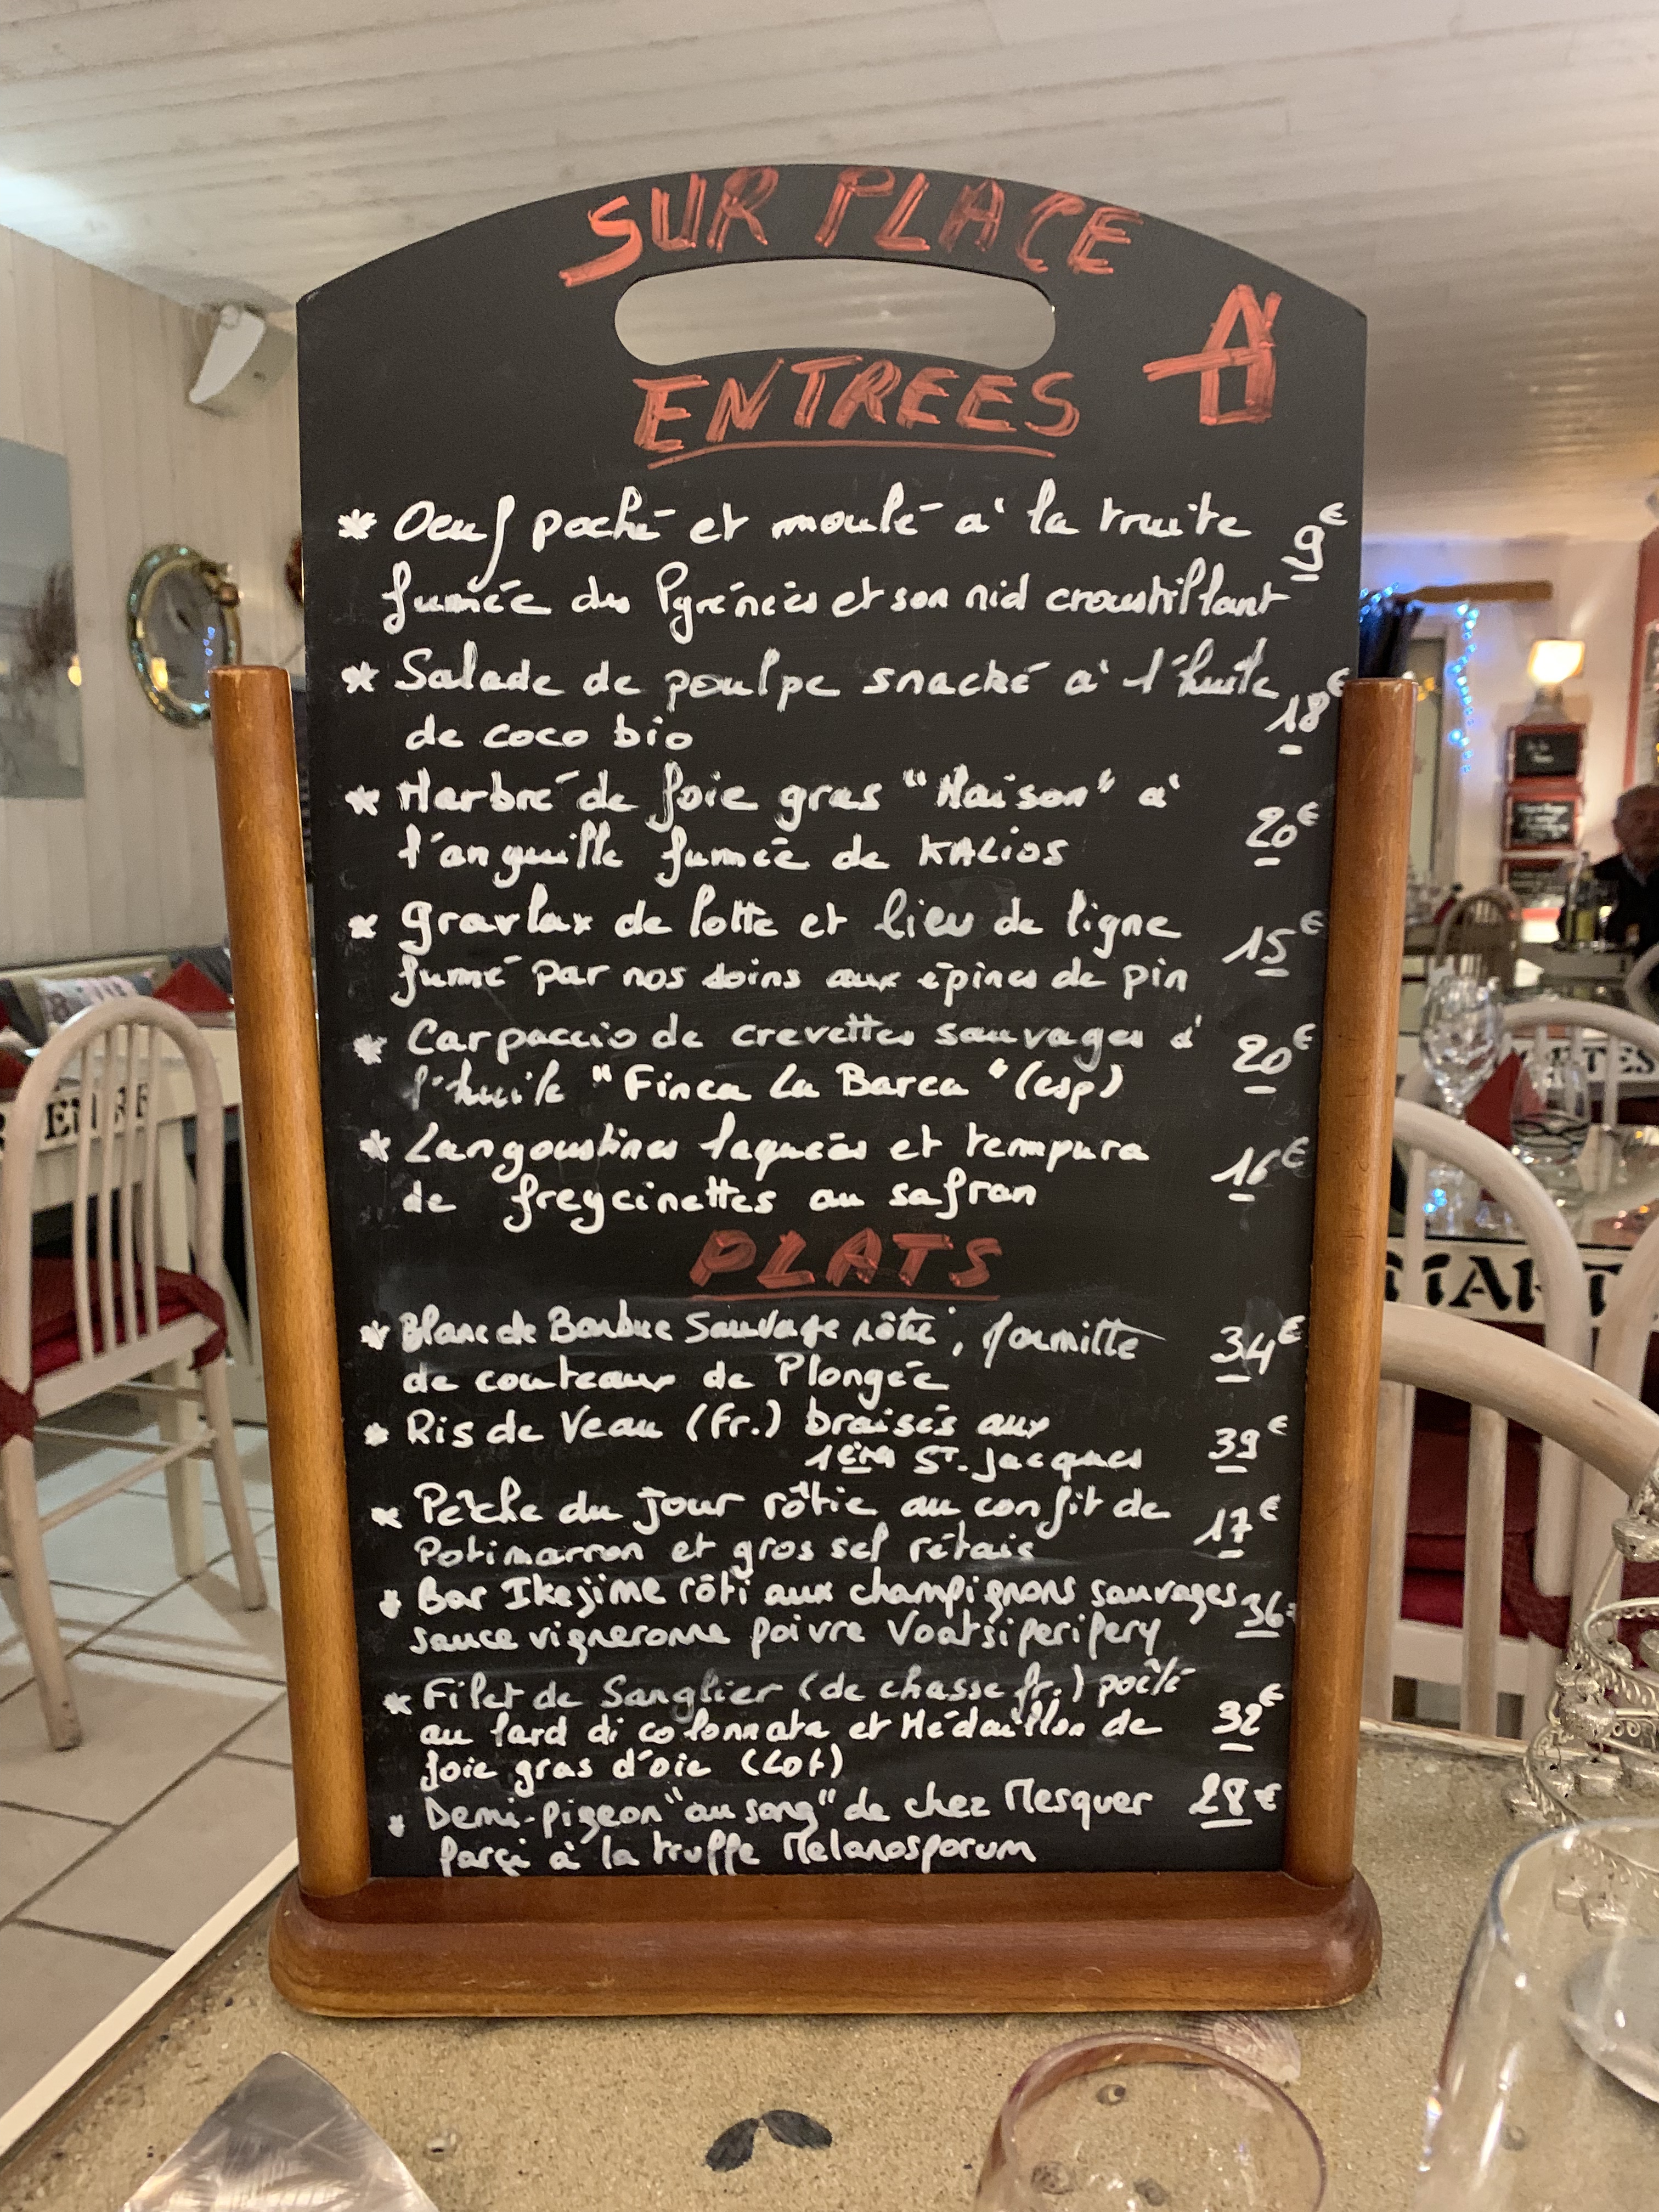 SUR PLACE
ENTREES
* Oeuf poché et moulé à la truite
9€
fumée des Pyrénées et son nid croustillant
* Salade de poulpe snacké à l'huile
18€
de coco bio
* Marbré de foie gras "Maison" à
20€
l'anguille fumée de KALIOS
* Gravlax de lotte et lieu de ligne
15€
fumé par nos soins aux épines de pin
* Carpaccio de crevettes sauvages à
20€
l'huile "Finca La Barca" (esp)
* Langoustines laquées et tempura
16€
de freycinettes au safran
PLATS
* Blanc de Barbue Sauvage rôtie,
34€
de couteaux de Plongée
* Ris de Veau (Fr.) braisés aux
39€
1ères ST. Jacques
* Pêche du jour rôtie au confit de
17€
Potimarron et gros sel rétais
* Bar Ikejime rôti aux champignons sauvages
36€
sauce vigneronne poivre Voatsiperipery
* Filet de Sanglier (de chasse fr.) poêlé
au lard di colonnata et Médaillon de
32€
foie gras d'oie (Lot)
* Demi-pigeon "au sang" de chez Mesquer
28€
farçi à la truffe Melanosporum